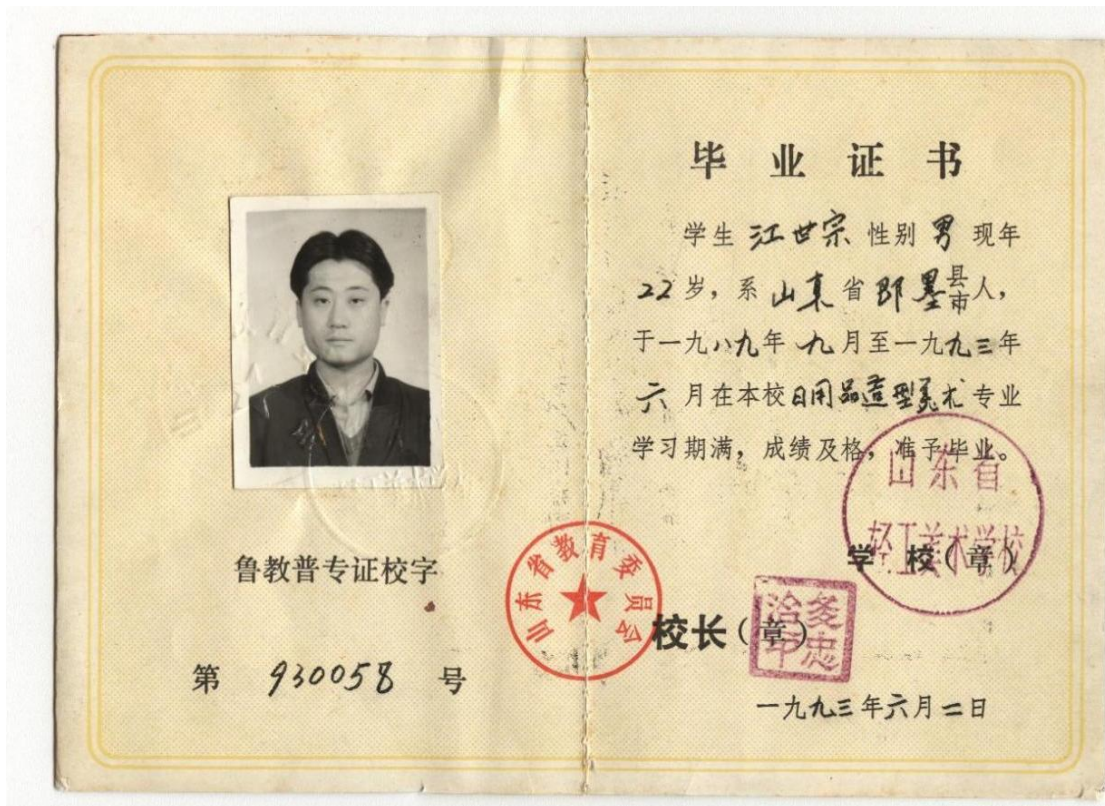 鲁教普专证校字
第 930058 号
山东省教育委员会
毕业证书
学生 江世宗 性别 男 现年
22 岁，系 山东 省 即墨 县市人，
于一九八九年 九月至一九九三年
六 月在本校日用品造型美术专业
学习期满，成绩及格，准予毕业。
山东省
轻工美术学校
学 校（章）
校长（章）
一九九三年六月二日